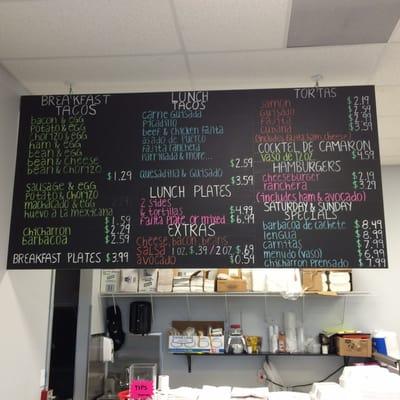 BREAKFAST TACOS
bacon & egg
potato & egg
chorizo & egg
ham & egg
bean & egg
bean & cheese
bean & chorizo
$1.29
sausage & egg
potato & chorizo
machacado & egg
huevo a la mexicana
$1.59
chicharron $2.29
barbacoa $2.59
BREAKFAST PLATES $3.99
LUNCH TACOS
carne guisada
picadillo
beef & chicken fajita
asado de puerco
fajita ranchera
parrillada & more...
$2.59
quesadilla & guisada
$3.59
LUNCH PLATES
2 sides
& tortillas $4.99
fajita plate or mixed $6.99
EXTRAS
cheese, bacon, beans
salsa 1 oz $.39 / 2 oz $.69
avocado $0.59
TORTAS
jamon $2.19
guisada $2.59
fajita $3.59
cubana $3.59
(includes fajita, ham, cheese)
COCKTEL DE CAMARON
vaso de 12 oz $4.59
HAMBURGERS
cheeseburger $2.19
ranchera $3.29
(includes ham & avocado)
SATURDAY & SUNDAY SPECIALS
barbacoa de cachete $8.49
lengua $8.99
carnitas $7.99
menudo (vaso) $6.99
chicharron prensado $7.99
TIPS